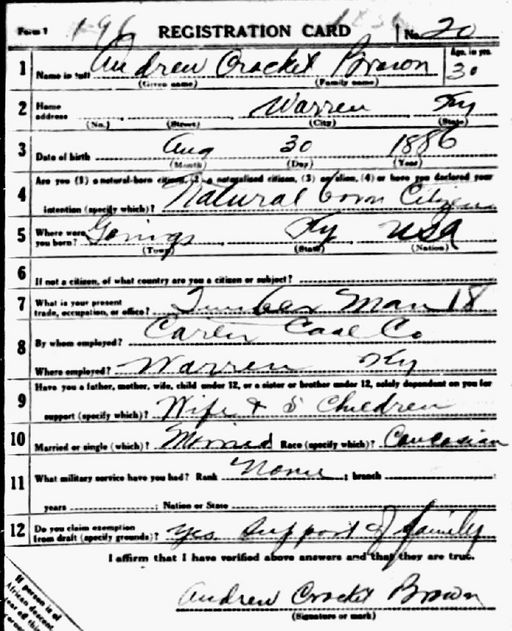 Form 1 REGISTRATION CARD No. 20
Age, in yrs.
1 Andrew Crocket Brown 30
Name in full
(Given name) (Family name)
2 Home address Warren Ky
(No.) (Street) (City) (State)
3 Date of birth Aug 30 1886
(Month) (Day) (Year)
4 Are you (1) a natural-born citizen, (2) a naturalized citizen, (3) an alien, (4) or have you declared your
intention (specify which)? Natural born Citizen
5 Where were you born? Ky USA
(Town) (State) (Nation)
6 If not a citizen, of what country are you a citizen or subject?
7 What is your present trade, occupation, or office? Timber Man 18
8 By whom employed? Coal Co
Where employed? Warren Ky
9 Have you a father, mother, wife, child under 12, or a sister or brother under 12, solely dependent on you for
support (specify which)? Wife & 5 Children
10 Married or single (which)? Married Race (specify which)? Caucasian
11 What military service have you had? Rank None ; branch
years ; Nation or State
12 Do you claim exemption from draft (specify grounds)? Yes Support of family
I affirm that I have verified above answers and that they are true.
Andrew Crocket Brown
(Signature or mark)
If person is of
African descent,